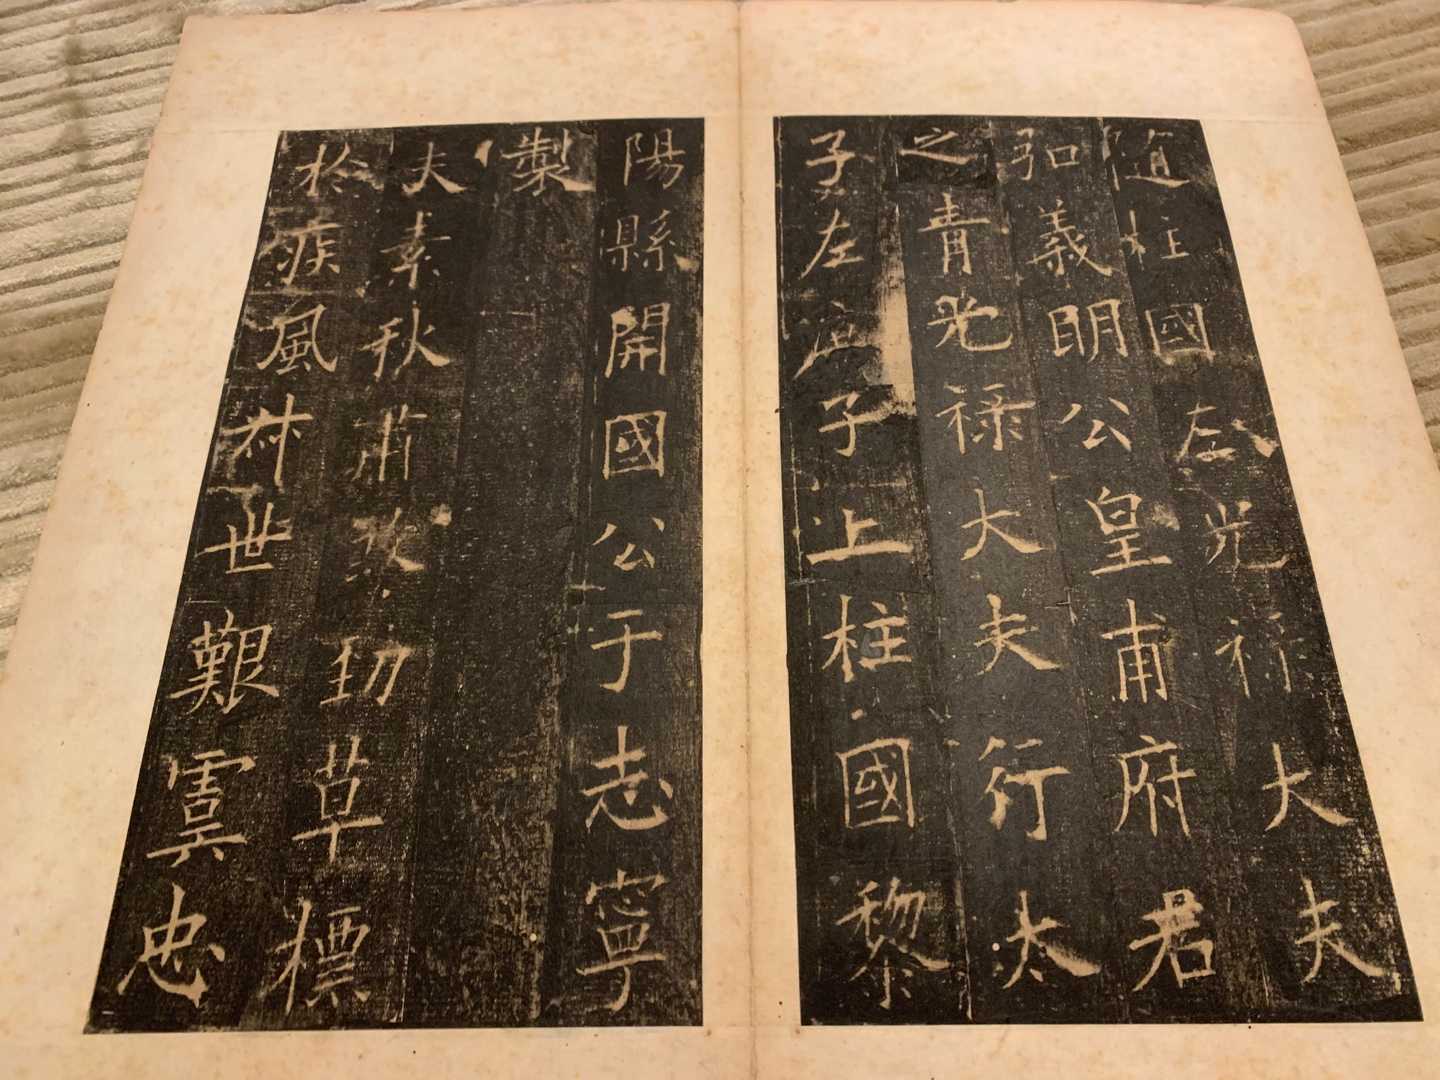 隨柱國左光祿大夫
弘義明公皇甫府君
之青光祿大夫行太
子左庶子上柱國黎
陽縣開國公于志寧
製
夫素秋肅煞勁草標
於疾風叔世艱虞忠